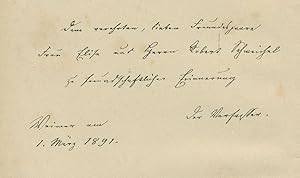 Dem verehrten, lieben Freundespaare
Frau Elise und Herrn Robert Schweichel
zu freundschaftlicher Erinnerung
Der Verfasser.
Weimar am
1. März 1891.